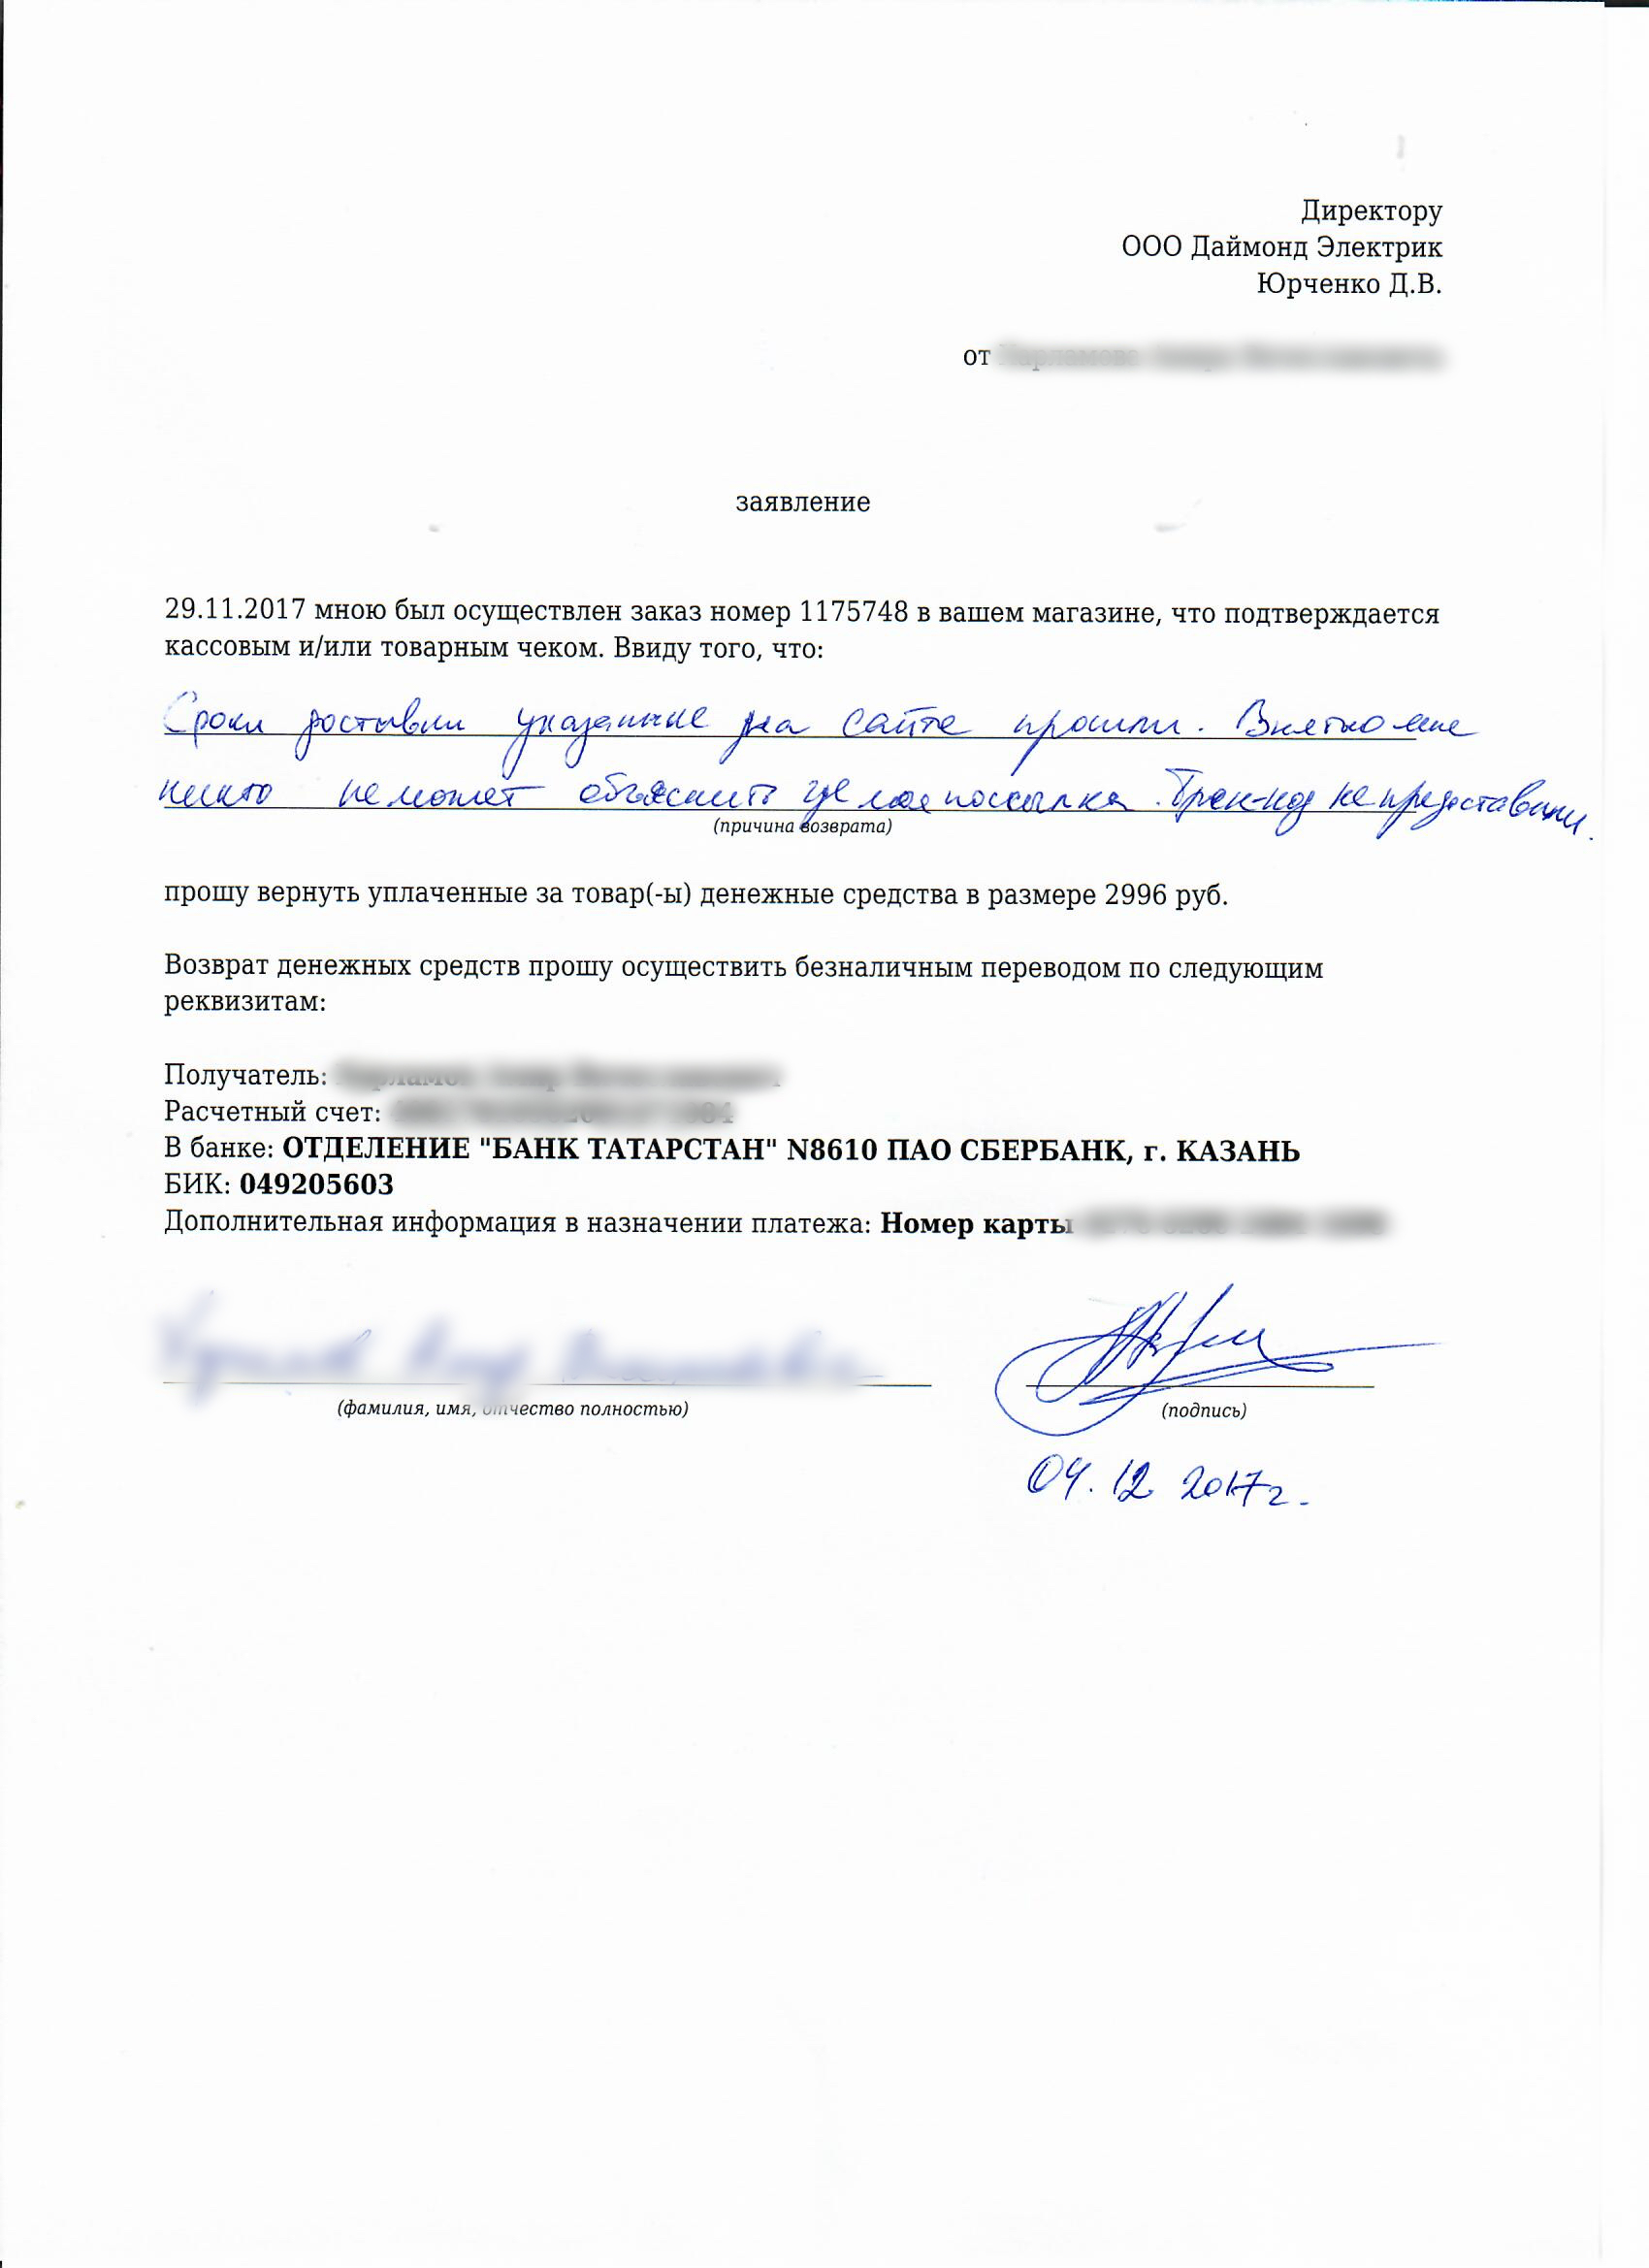 Директору
ООО Даймонд Электрик
Юрченко Д.В.
от
заявление
29.11.2017 мною был осуществлен заказ номер 1175748 в вашем магазине, что подтверждается
кассовым и/или товарным чеком. Ввиду того, что:
Сроки доставки указанные на сайте прошли. Внятно мне
никто не может объяснить где моя поссылка. Трек-код не предоставили.
(причина возврата)
прошу вернуть уплаченные за товар(-ы) денежные средства в размере 2996 руб.
Возврат денежных средств прошу осуществить безналичным переводом по следующим
реквизитам:
Получатель:
Расчетный счет:
В банке: ОТДЕЛЕНИЕ "БАНК ТАТАРСТАН" N8610 ПАО СБЕРБАНК, г. КАЗАНЬ
БИК: 049205603
Дополнительная информация в назначении платежа: Номер карты
(фамилия, имя, отчество полностью) (подпись)
04.12 2017г.